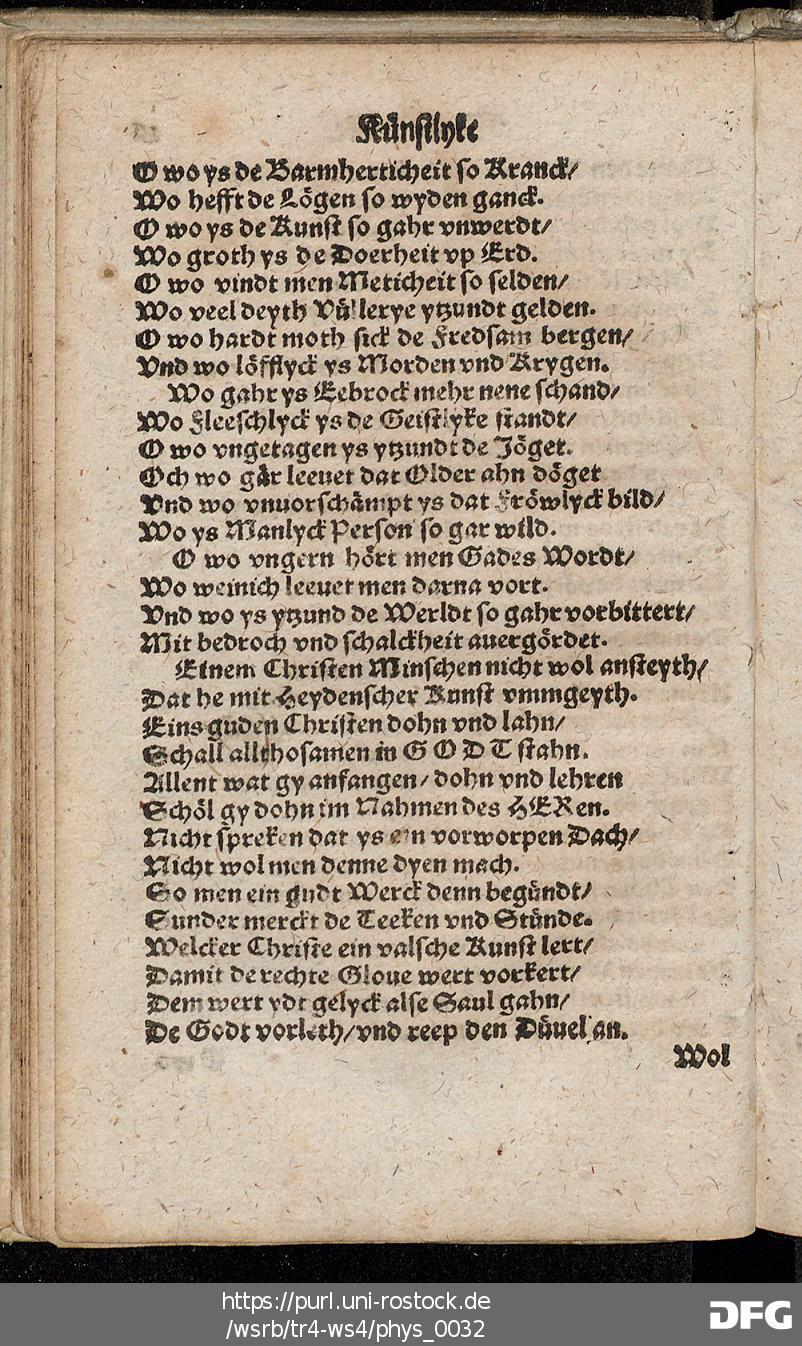 Künstlyke
O wo ys de Barmherticheit so Kranck/
Wo hefft de Lögen so wyden ganck.
O wo ys de Kunst so gahr vnwerdt/
Wo groth ys de Doerheit vp Erd.
O wo vindt men Meticheit so selden/
Wo veel deyth Vüllerye ytzundt gelden.
O wo hardt moth sick de Fredsam bergen/
Vnd wo löfflyck ys Morden vnd Krygen.
Wo gahr ys Eebrock mehr nene schand/
Wo Fleeschlyck ys de Geistlyke standt/
O wo vngetagen ys ytzundt de Jöget.
Och wo går leeuet dat Older ahn döget
Vnd wo vnuorschämpt ys dat Fröwlyck bild/
Wo ys Manlyck Person so gar wild.
O wo vngern hört men Gades Wordt/
Wo weinich leeuet men darna vort.
Vnd wo ys ytzund de Werldt so gahr vorbittert/
Mit bedroch vnd schalckheit auergördet.
Einem Christen Minschen nicht wol ansteyth/
Dat he mit Heydenscher Kunst vmmgeyth.
Eins guden Christen dohn vnd lahn/
Schall allthosamen in G O D T stahn.
Allent wat gy anfangen/ dohn vnd lehren
Schöl gy dohn im Nahmen des HERen.
Nicht spreken dat ys ein vorworpen Dach/
Nicht wol men denne dyen mach.
So men ein gudt Werck denn begündt/
Sunder merckt de Teeken vnd Stünde.
Welcker Christe ein valsche Kunst lert/
Damit de rechte Gloue wert vorkert/
Dem wert ydt gelyck alse Saul gahn/
De Godt vorleth/ vnd reep den Düuel an.
Wol
https://purl.uni-rostock.de
/wsrb/tr4-ws4/phys_0032
DFG